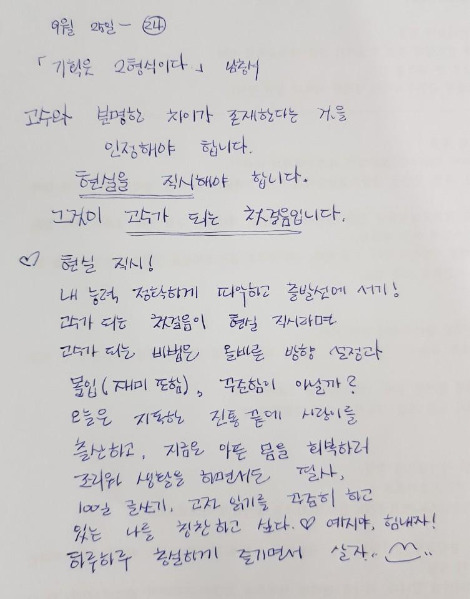 9월 25일 - 24
「기획은 2형식이다」 남충식
고수와 분명한 차이가 존재한다는 것을
인정해야 합니다.
현실을 직시해야 합니다.
그것이 고수가 되는 첫걸음입니다.
♡ 현실 직시!
내 능력 정확하게 파악하고 출발선에 서기!
고수가 되는 첫걸음이 현실 직시라면
고수가 되는 비법은 올바른 방향 설정과
몰입(재미 포함), 꾸준함이 아닐까?
오늘은 지독한 진통 끝에 사랑이를
출산하고, 지금은 아픈 몸을 회복하러
조리원 생활을 하면서도 필사,
100일 글쓰기, 고전 읽기를 꾸준히 하고
있는 나를 칭찬하고 싶다. ♡ 예지야, 힘내자!
하루하루 충실하게 즐기면서 살자..